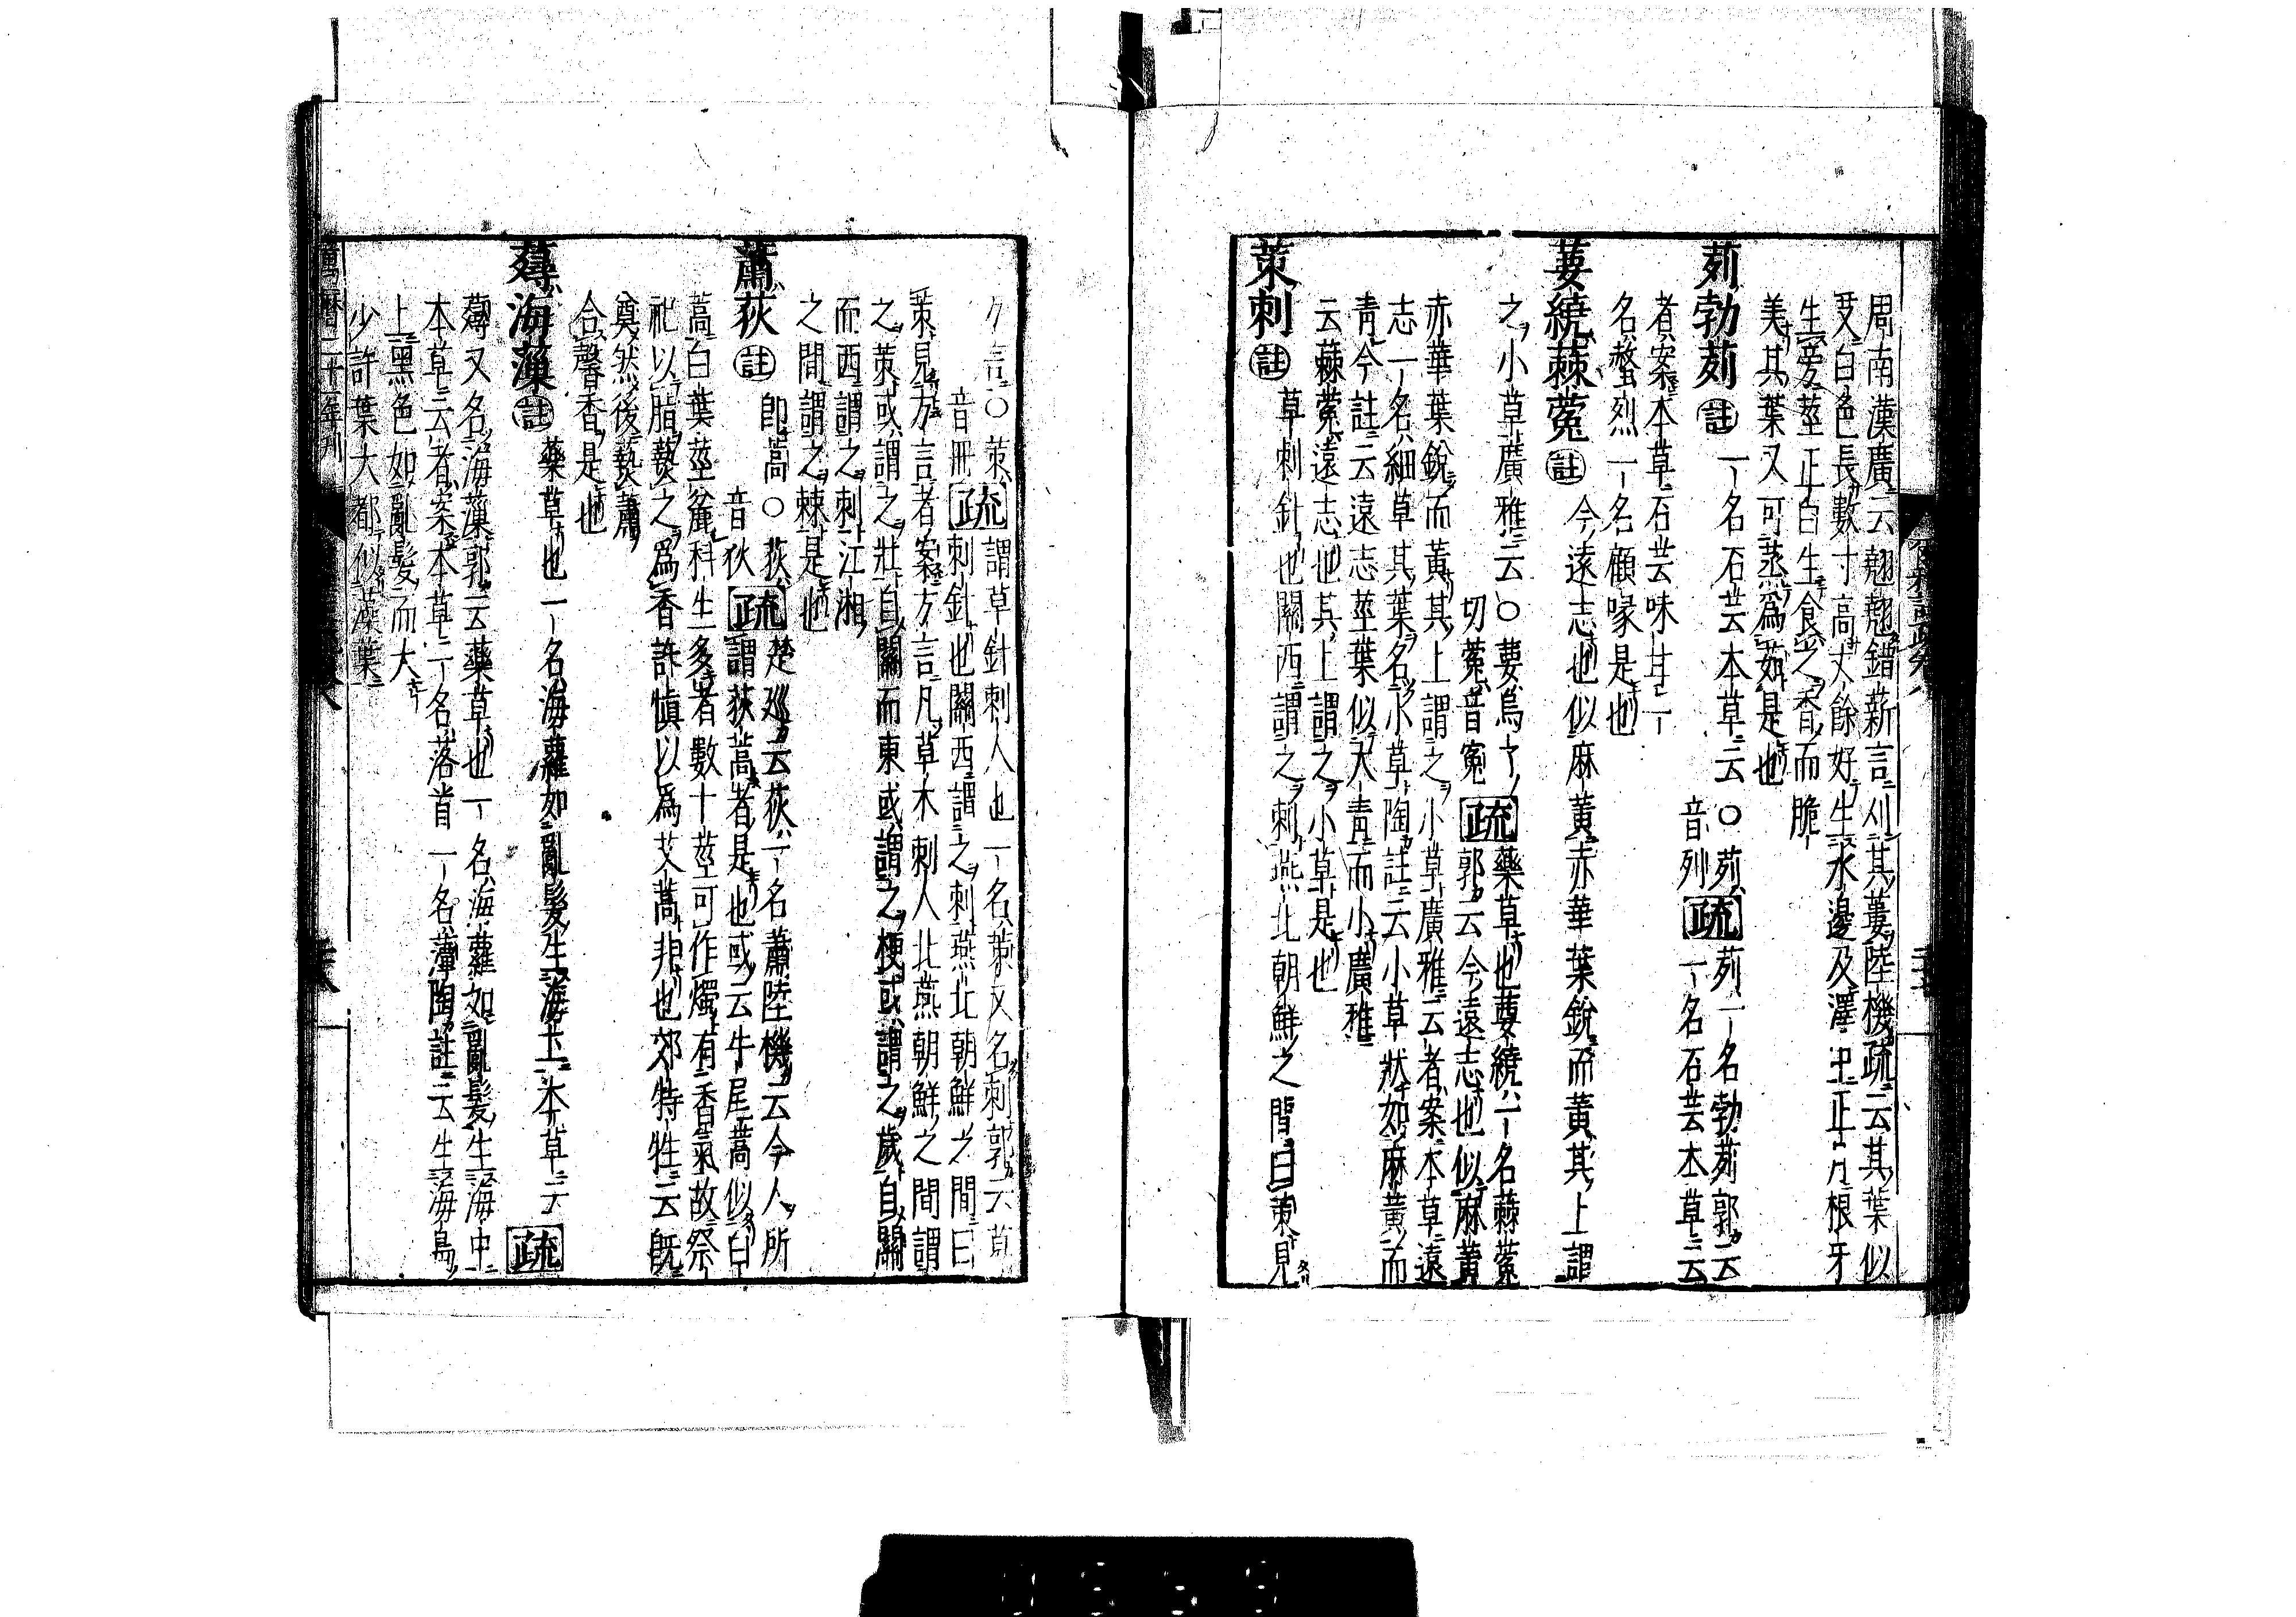 周南漢廣云翹翹錯薪言刈其蔞陸機疏云其葉似
艾白色長數寸高丈餘好生水邊及澤中正月根牙
生旁莖正白生食之香而脆
美其葉又可蒸爲茹是也
茢勃茢註一名石芸本草云○茢音列疏茢一名勃茢郭云一名石芸本草云
者案本草石芸味甘一
名螫烈一名顧喙是也
葽繞蕀蒬註今遠志也似麻黃赤華葉銳而黃其上謂
之小草廣雅云○葽烏了切蒬音寃疏藥草也葽繞一名蕀蒬
郭云今遠志也似麻黃
赤華葉銳而黃其上謂之小草廣雅云者案本草遠
志一名細草其葉名小草陶註云小草狀如麻黃而
青今註云遠志莖葉似大青而小廣雅
云蕀蒬遠志也其上謂之小草是也
茦刺註草刺針也關西謂之刺燕北朝鮮之間曰茦見
方言○茦音冊疏謂草針刺人也一名茦又名刺郭云草
刺針也關西謂之刺燕北朝鮮之間曰
茦見方言者案方言凡草木刺人北燕朝鮮之間謂
之茦或謂之壯自關而東或謂之梗或謂之歲自關
而西謂之刺江湘
之間謂之棘是也
蕭荻註即蒿○荻音狄疏楚巡云荻一名蕭陸機云今人所
謂荻蒿者是也或云牛尾蒿似白
蒿白葉莖麄科生多者數十莖可作燭有香氣故祭
祀以脂爇之爲香許愼以爲艾蒿非也郊特牲云旣
奠然後爇蕭
合馨香是也
蕁海藻註藥草也一名海蘿如亂髮生海中本草云疏
蕁又名海藻郭云藥草也一名海蘿如亂髮生海中
本草云者案本草一名落首一名藫陶註云生海島
上黑色如亂髮而大
少許葉大都似藻葉
萬曆二十一年刊